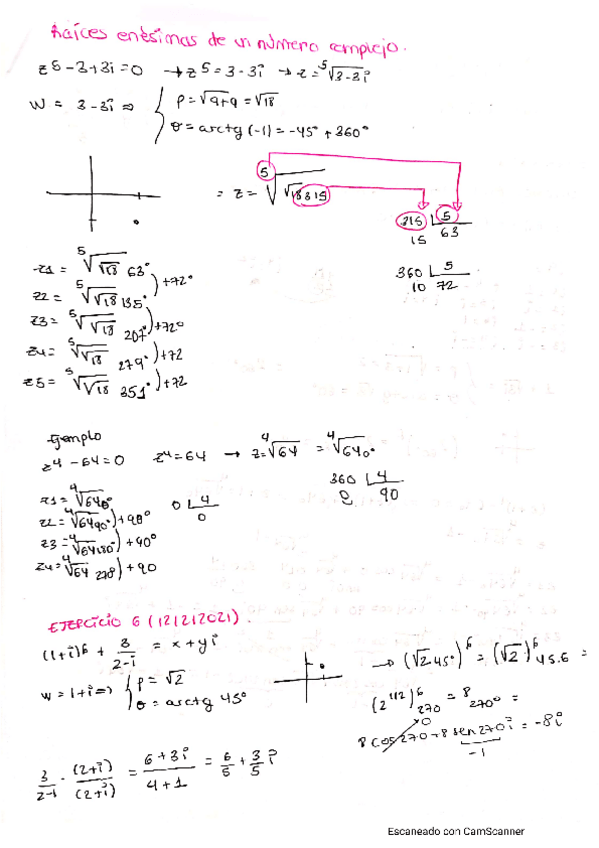 Raíces enésimas de un número complejo.
z⁵-3+3i=0 → z⁵=3-3i → z=⁵√3-3i
w = 3-3i ⇒ { ρ=√9+9 = √18
θ=arctg(-1)=-45°+360°
= z = ⁵√√18 315
315 |5
15 63
z1 = ⁵√√18 63° )+72°
z2 = ⁵√√18 135° )+72°
z3 = ⁵√√18 207° )+72
z4= ⁵√√18 279° )+72
z5= ⁵√√18 351°
360 |5
10 72
Ejemplo
z⁴-64=0 z⁴=64 → z=⁴√64 = ⁴√64 0°
360 |4
0 90
z1=⁴√64 0°
z2=⁴√64 90° )+90°
z3=⁴√64 180° )+90°
z4=⁴√64 270° )+90
0 |4
0
EJERCICIO 6 (12/2/2021).
(1+i)⁶ + 3/2-i = x+yi
→ (√2 45°)⁶ = (√2)⁶ 45·6 =
w=1+i ⇒ { ρ=√2
θ=arctg 45°
(2^1/2)⁶ 270 = 8 270° =
8cos270+8sen270i = -8i
0
-1
3/2-i · (2+i)/(2+i) = 6+3i/4+1 = 6/5 + 3/5 i
Escaneado con CamScanner